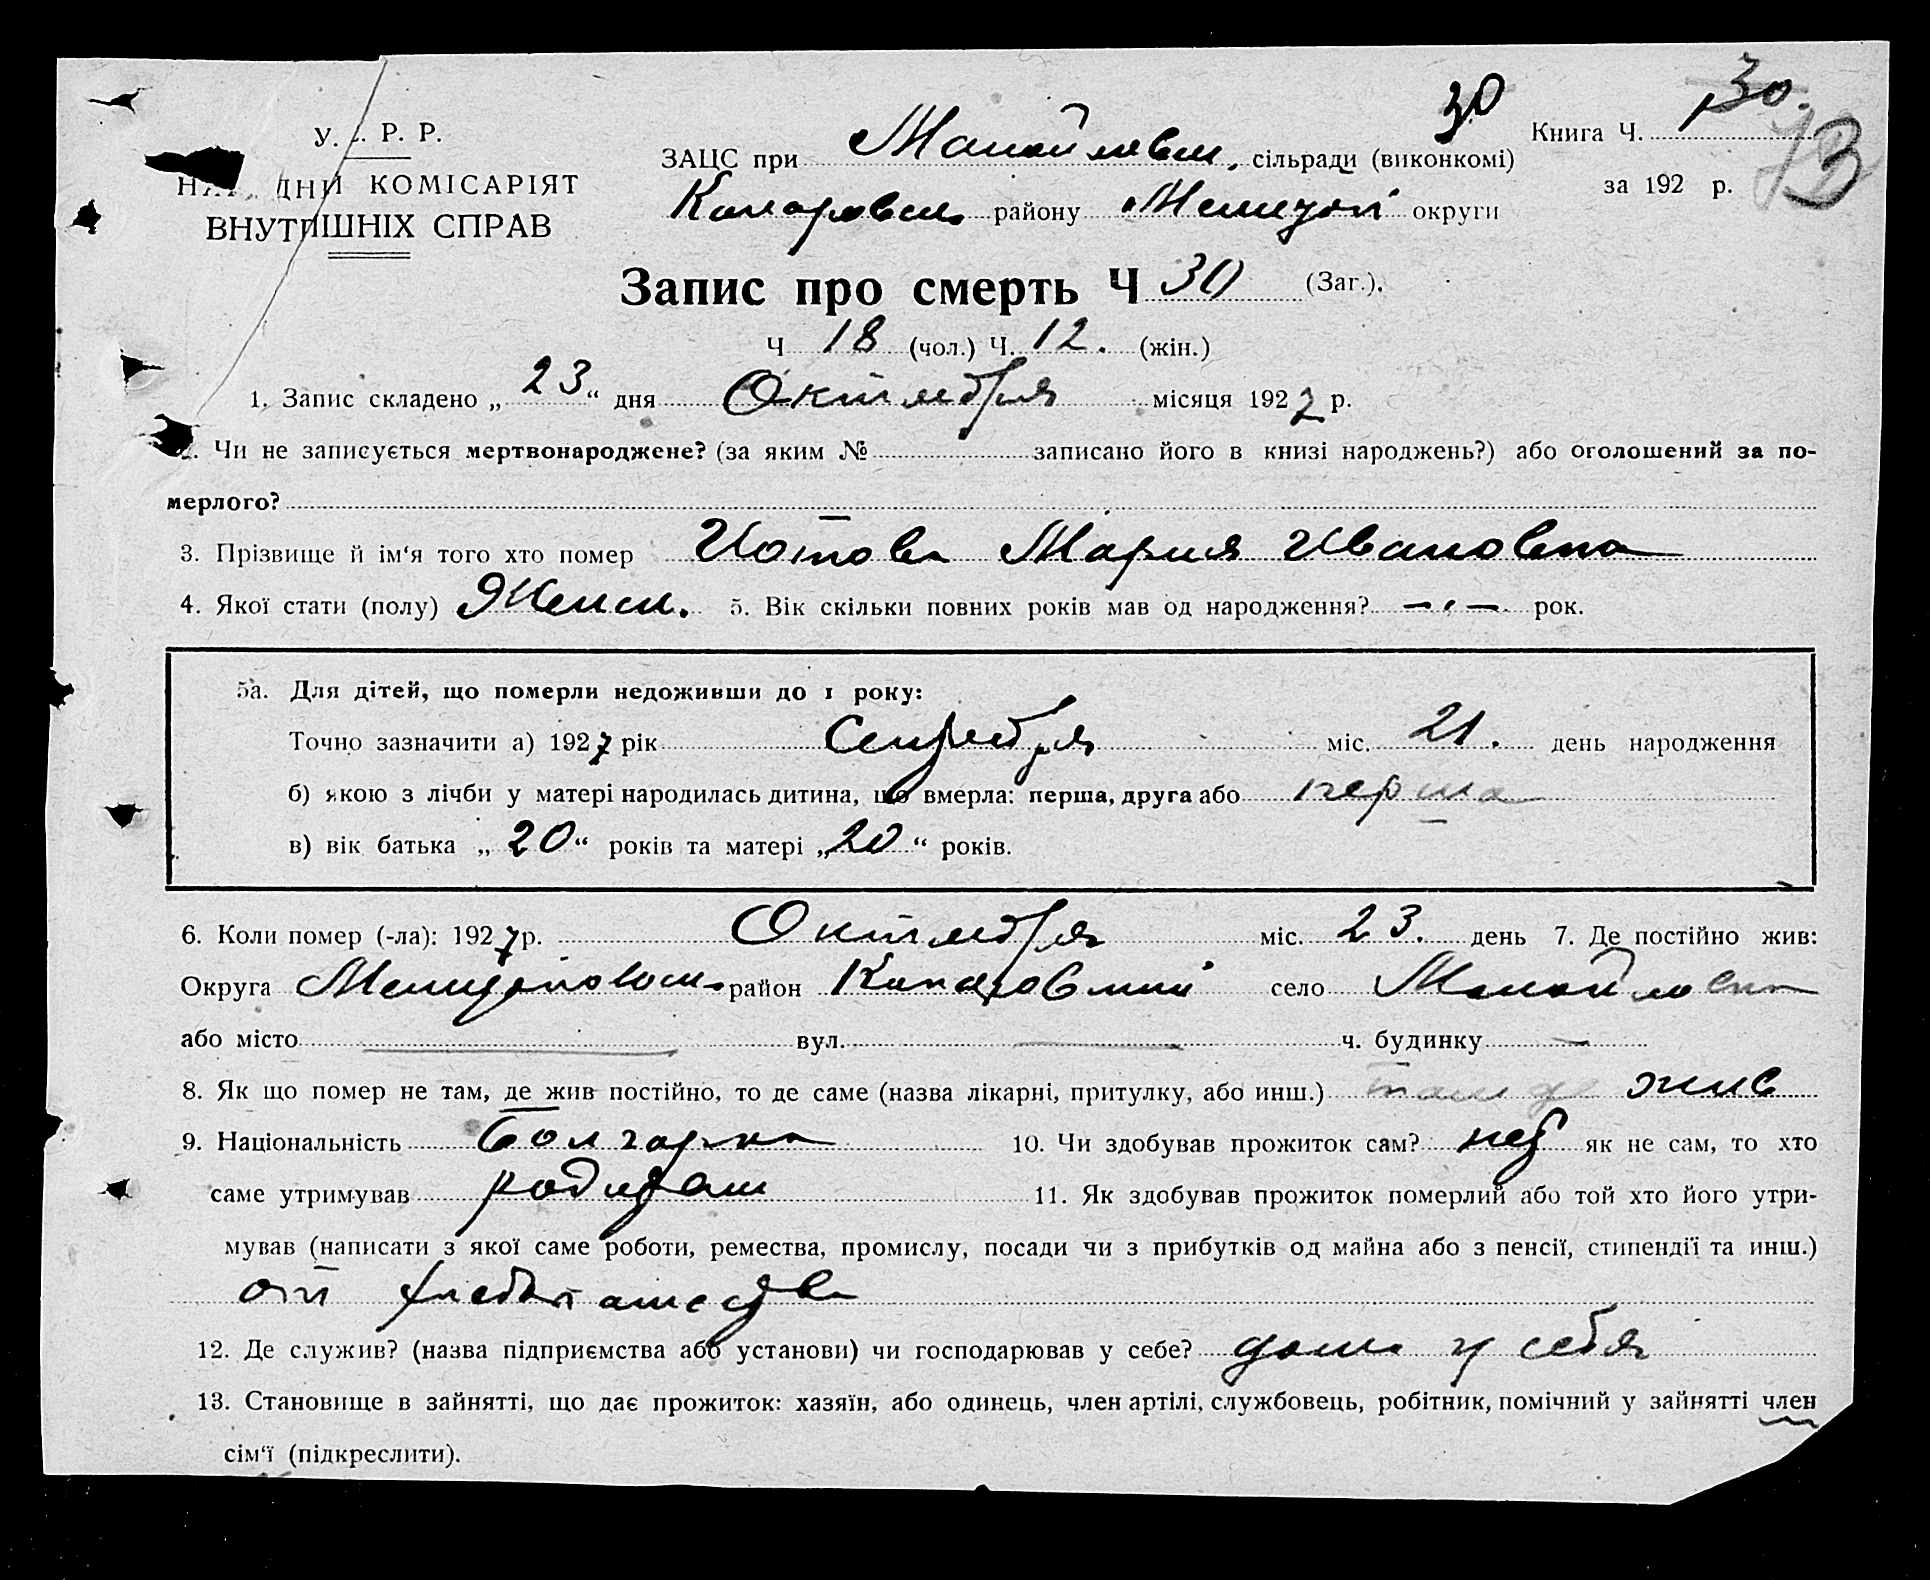 У. . Р. Р.
НА ДНИ КОМІСАРІЯТ
ВНУТРІШНІХ СПРАВ
ЗАЦС при Манойлевск. сільради (виконкомі)
району округи
30
Книга Ч. 30.
за 192 р.
13
Запис про смерть Ч 30 (Заг.).
Ч 18 (чол.) Ч. 12. (жін.)
1. Запис складено „ 23 “ дня Октября місяця 1927 р.
2. Чи не записується мертвонароджене? (за яким № записано його в книзі народжень?) або оголошений за по-
мерлого?
3. Прізвище й ім‘я того хто помер Иотова Мария Ивановна
4. Якої стати (полу) Женск. 5. Вік скільки повних років мав од народження? — . — рок.
5а. Для дітей, що померли недоживши до 1 року:
Точно зазначити а) 1927 рік Сентября міс. 21. день народження
б) якою з лічби у матері народилась дитина, що вмерла: перша, друга або перша
в) вік батька „ 20 “ років та матері „ 20 “ років.
6. Коли помер (-ла): 1927 р. Октября міс. 23. день 7. Де постійно жив:
Округа район село
або місто — вул. — ч. будинку —
8. Як що помер не там, де жив постійно, то де саме (назва лікарні, притулку, або инш.) там де жив
9. Національність болгарка 10. Чи здобував прожиток сам? нет як не сам, то хто
саме утримував 11. Як здобував прожиток померлий або той хто його утри-
мував (написати з якої саме роботи, ремества, промислу, посади чи з прибутків од майна або з пенсії, стипендії та инш.)
от хлебопашества
12. Де служив? (назва підприємства або установи) чи господарював у себе? дома у себя
13. Становище в зайнятті, що дає прожиток: хазяїн, або одинець, член артілі, службовець, робітник, помічний у зайнятті член
сім‘ї (підкреслити).